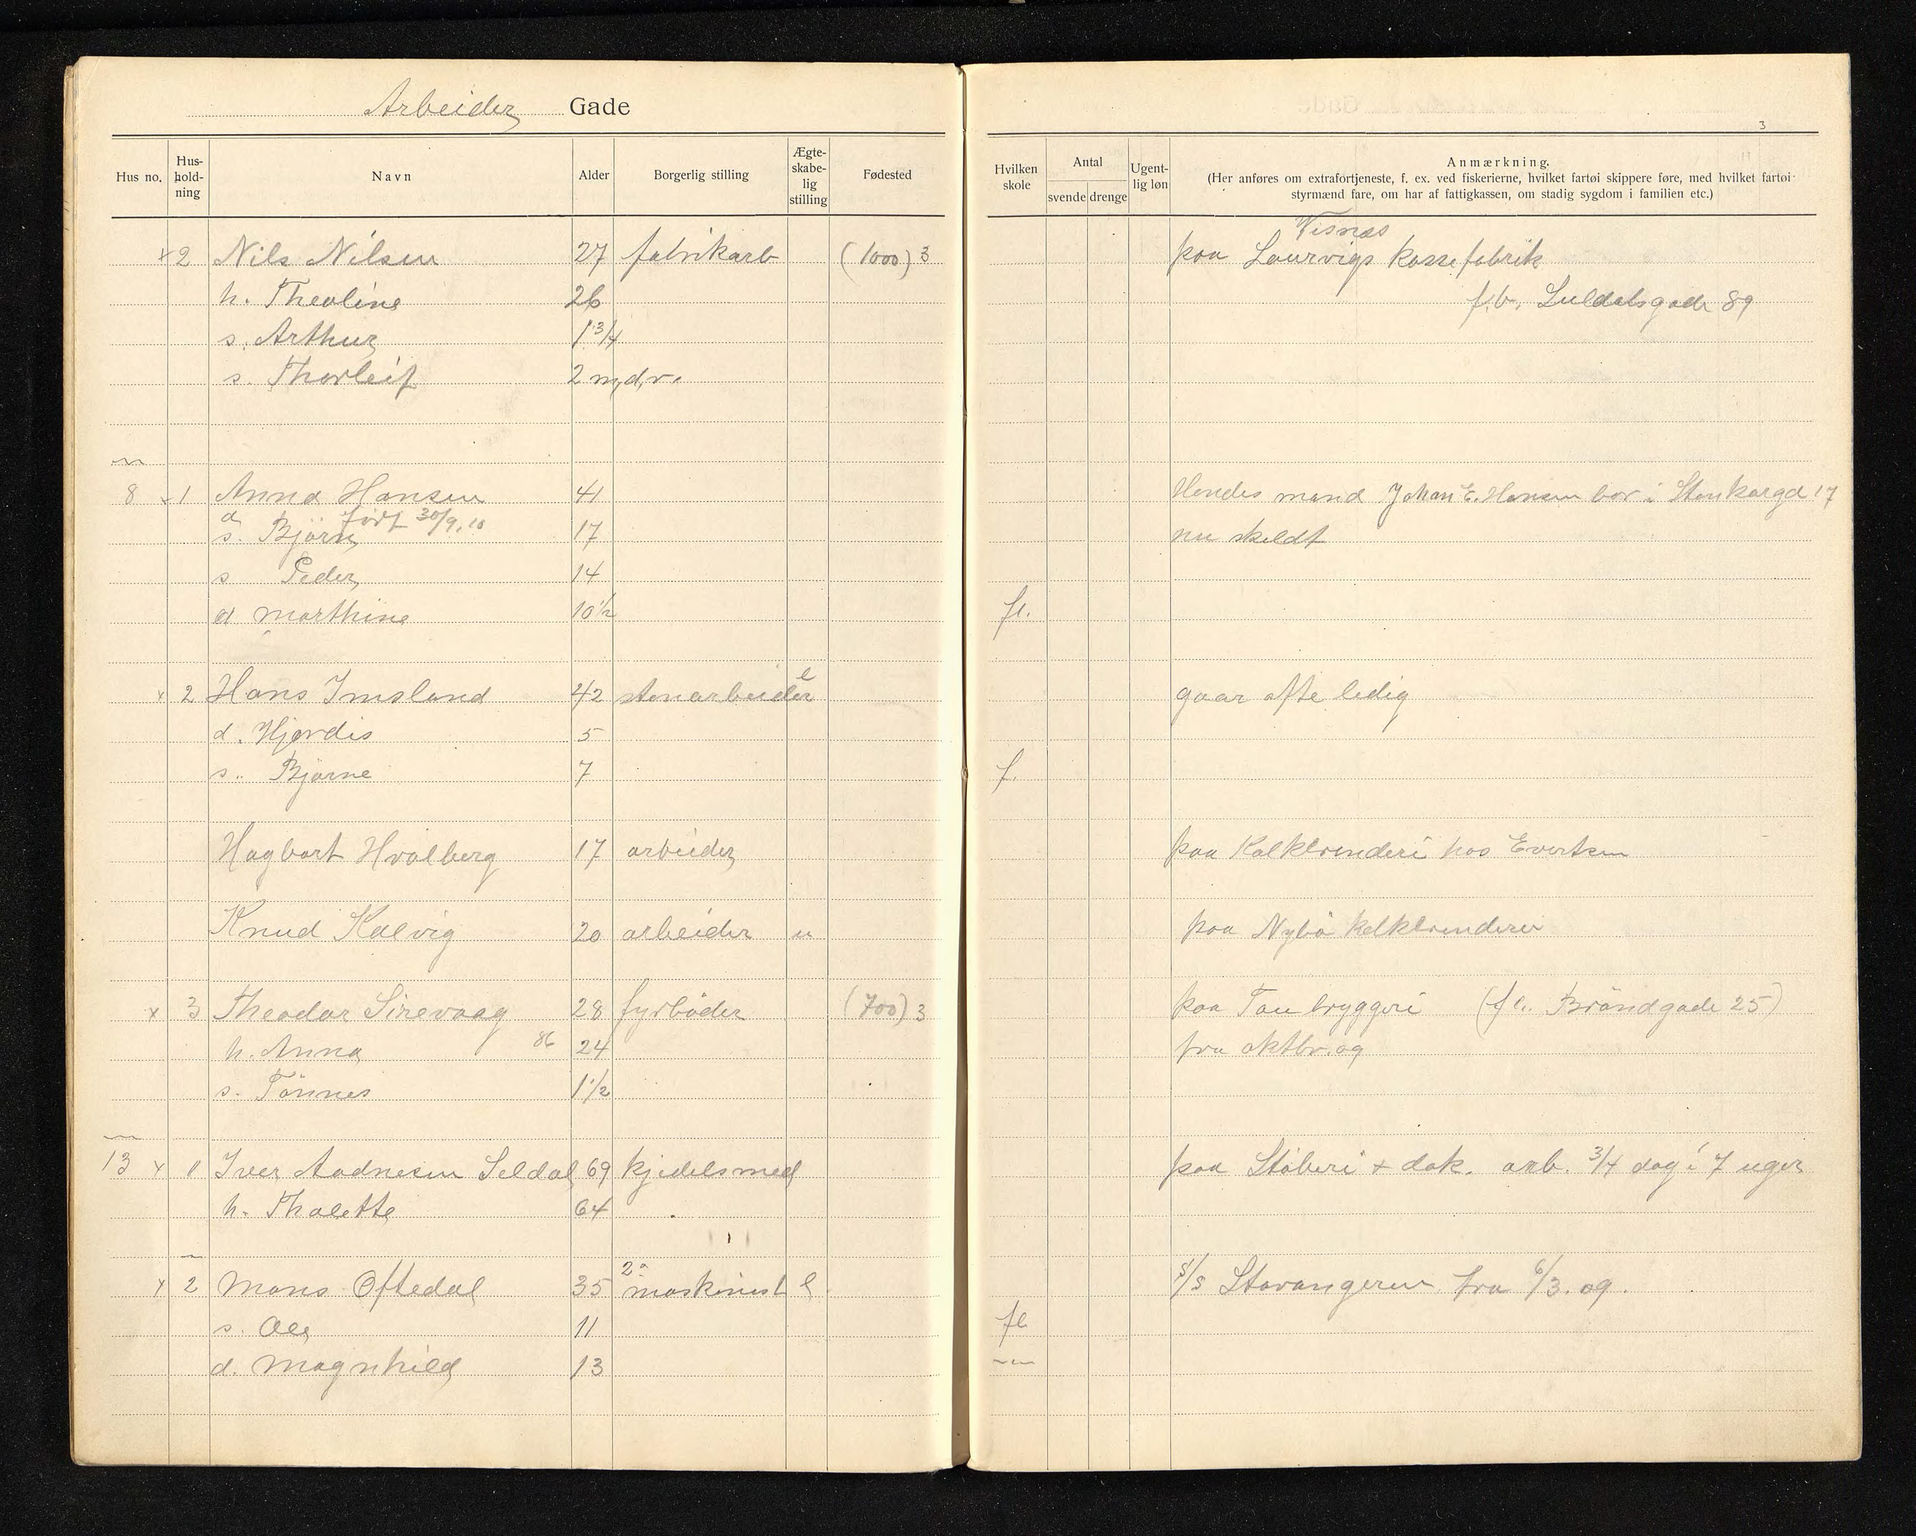 Arbeider Gade
3
Hus no. Hus-holdning Navn Alder Borgerlig stilling Ægte-skabe-lig stilling Fødested Hvilken skole Antal svende drenge Ugent-lig løn Anmærkning.
(Her anføres om extrafortjeneste, f. ex. ved fiskerierne, hvilket fartøi skippere føre, med hvilket fartøi
styrmænd fare, om har af fattigkassen, om stadig sygdom i familien etc.)
Visnes
x 2 Nils Nilsen 27 fabrikarb (1000) 3 paa Laurvigs kassefabrik
h. Theoline 26 f.b.
s. Arthur 1 3/4
s. Thorleif 2 m.d.r.
8 1 Anna Hansen 41 Hendes mand Johan E. Hansen bor i Stenkargd 17
d født 30/9.10
s. Björn 17 nu skeldt
s Peder 14
d Marthine 10 1/2 fl.
x 2 Hans Imsland 42 stenarbeider e gaar ofte ledig
d. Hjørdis 5
s. Bjarne 7 f.
Hagbart Hvalberg 17 arbeider paa Kalkbrenderi hos Evertsen
Knud Kalvig 20 arbeider u paa Nybö kalkbrenderi
x 3 Theodor Sirevaag 28 fyrböder (700) 3 paa Tou bryggeri (fl. Bröndgade 25)
h. Anna 86 24 fra oktbr. 09
s. Tönnes 1 1/2
13 x 1 Iver Aadnesen Seldal 69 kjedelsmed paa Stöberi + dok. arb. 3/4 dag i 7 uger
h. Thalette 64
x 2 Mons Oftedal 35 2n maskinist e s/s Stavangeren fra 6/3. 09.
s. Ole 11 fl
d. Magnhild 13 ~